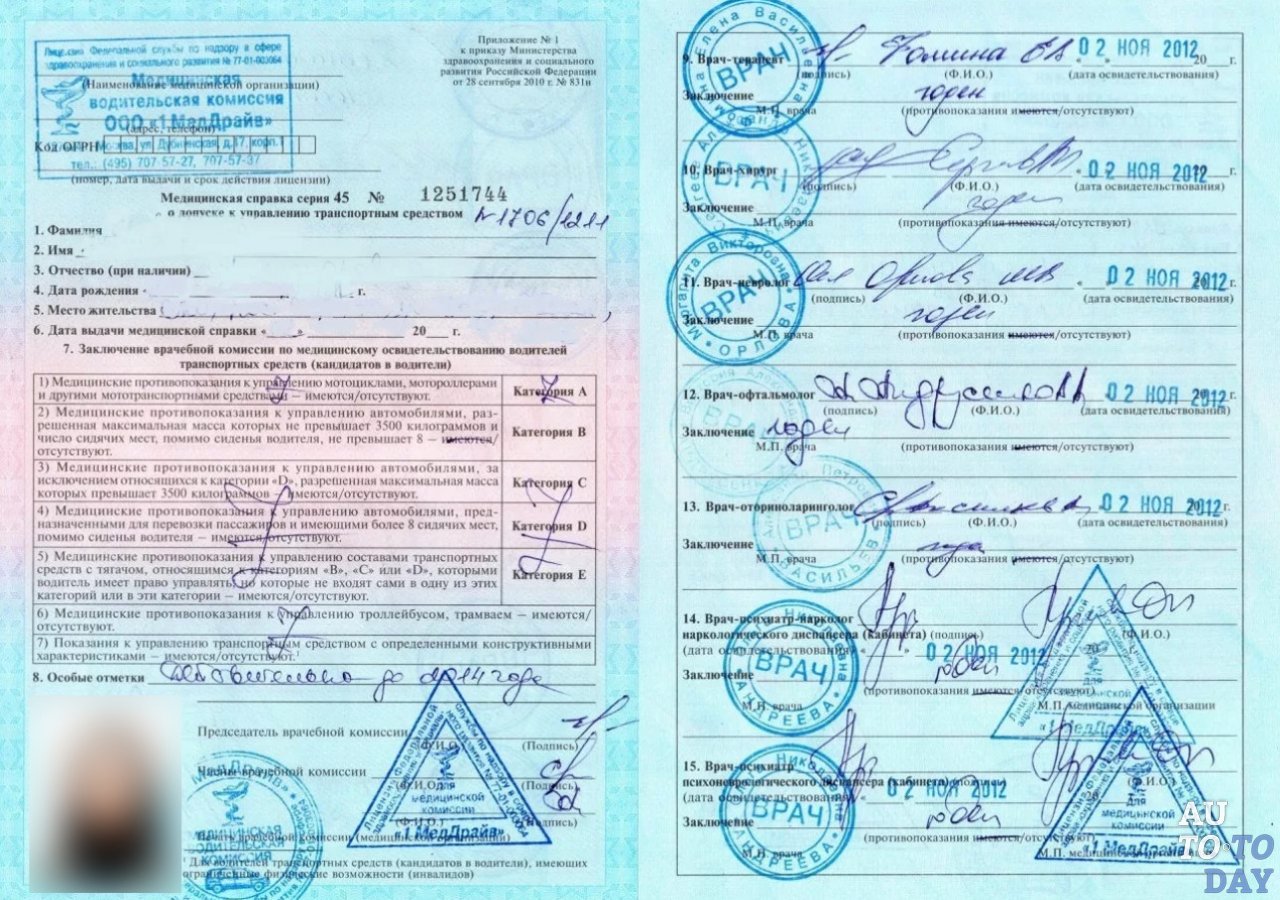 Лицензия Федеральной службы по надзору в сфере
здравоохранения и социального развития № 77-01-003064
Медицинская
(Наименование медицинской организации)
водительская комиссия
ООО «1 МедДрайв»
(адрес, телефон)
Код ОГРН
Москва, ул. Дубнинская, д.17, корп.1
тел.: (495) 707-57-27, 707-57-37
(номер, дата выдачи и срок действия лицензии)
Приложение № 1
к приказу Министерства
здравоохранения и социального
развития Российской Федерации
от 28 сентября 2010 г. № 831н
Медицинская справка серия 45 № 1251744
о допуске к управлению транспортным средством № 1706/1211
1. Фамилия
2. Имя
3. Отчество (при наличии)
4. Дата рождения « г.
5. Место жительства
6. Дата выдачи медицинской справки « » 20 г.
7. Заключение врачебной комиссии по медицинскому освидетельствованию водителей
транспортных средств (кандидатов в водители)
1) Медицинские противопоказания к управлению мотоциклами, мотороллерами
и другими мототранспортными средствами — имеются/отсутствуют.
Категория A
2) Медицинские противопоказания к управлению автомобилями, раз-
решенная максимальная масса которых не превышает 3500 килограммов и
число сидячих мест, помимо сиденья водителя, не превышает 8 — имеются/
отсутствуют.
Категория B
3) Медицинские противопоказания к управлению автомобилями, за
исключением относящихся к категории «D», разрешенная максимальная масса
которых превышает 3500 килограммов — имеются/отсутствуют.
Категория C
4) Медицинские противопоказания к управлению автомобилями, пред-
назначенными для перевозки пассажиров и имеющими более 8 сидячих мест,
помимо сиденья водителя — имеются/отсутствуют.
Категория D
5) Медицинские противопоказания к управлению составами транспортных
средств с тягачом, относящимся к категориям «B», «C» или «D», которыми
водитель имеет право управлять, но которые не входят сами в одну из этих
категорий или в эти категории — имеются/отсутствуют.
Категория E
6) Медицинские противопоказания к управлению троллейбусом, трамваем — имеются/
отсутствуют.
7) Показания к управлению транспортным средством с определенными конструктивными
характеристиками — имеются/отсутствуют.¹
8. Особые отметки действительно до 2014 года
Председатель врачебной комиссии
(Ф.И.О.) (Подпись)
Члены врачебной комиссии
(Ф.И.О.)
(Ф.И.О.) (Подпись)
Печать врачебной комиссии (медицинской организации)
¹ Для водителей транспортных средств (кандидатов в водители), имеющих
ограниченные физические возможности (инвалидов)
МЕДИЦИНСКАЯ
ВОДИТЕЛЬСКАЯ
КОМИССИЯ
Для
медицинской
комиссии
«1 МедДрайв»
9. Врач-терапевт Фомина Е.В. 02 НОЯ 2012 20 г.
(подпись) (Ф.И.О.) (дата освидетельствования)
Заключение годен
М.П. врача (противопоказания имеются/отсутствуют)
ВРАЧ
10. Врач-хирург 02 НОЯ 2012 г.
(подпись) (Ф.И.О.) (дата освидетельствования)
Заключение годен
М.П. врача (противопоказания имеются/отсутствуют)
ВРАЧ
11. Врач-невролог Орлова М.В. 02 НОЯ 2012 г.
(подпись) (Ф.И.О.) (дата освидетельствования)
Заключение годен
М.П. врача (противопоказания имеются/отсутствуют)
Маргарита Викторовна ОРЛОВА
ВРАЧ
12. Врач-офтальмолог 02 НОЯ 2012 г.
(подпись) (Ф.И.О.) (дата освидетельствования)
Заключение годен
М.П. врача (противопоказания имеются/отсутствуют)
ВРАЧ
13. Врач-оториноларинголог 02 НОЯ 2012 г.
(подпись) (Ф.И.О.) (дата освидетельствования)
Заключение годен
М.П. врача (противопоказания имеются/отсутствуют)
ВРАЧ
14. Врач-психиатр-нарколог
наркологического диспансера (кабинета) (подпись) (Ф.И.О.)
(дата освидетельствования) 02 НОЯ 2012 20 г.
Заключение годен
(противопоказания имеются/отсутствуют)
М.П. врача М.П. медицинской организации
ВРАЧ
АНДРЕЕВА
Для
медицинской
комиссии
«1 МедДрайв»
15. Врач-психиатр
психоневрологического диспансера (кабинета) (подпись) (Ф.И.О.)
(дата освидетельствования) 02 НОЯ 2012
Заключение годен
(противопоказания имеются/отсутствуют)
М.П. врача М.П. медицинской организации
ВРАЧ
АНДРЕЕВА
Для
медицинской
комиссии
«1 МедДрайв»
AUTO TODAY